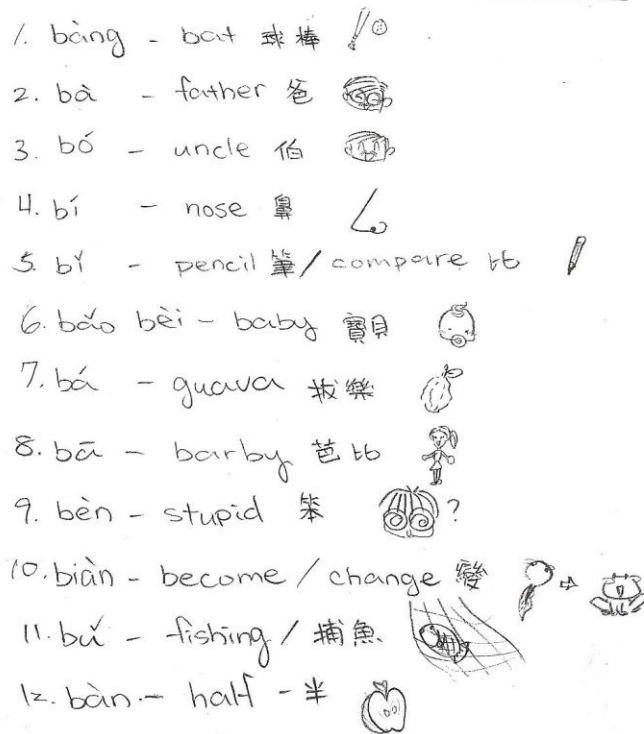 1. bàng - bat 球棒
2. bà - father 爸
3. bó - uncle 伯
4. bí - nose 鼻
5. bǐ - pencil 筆/compare 比
6. bǎo bèi - baby 寶貝
7. bá - guava 拔樂
8. bā - barby 芭比
9. bèn - stupid 笨 ?
10. biàn - become / change 變
11. bǔ - fishing / 捕魚
12. bàn - half - 半